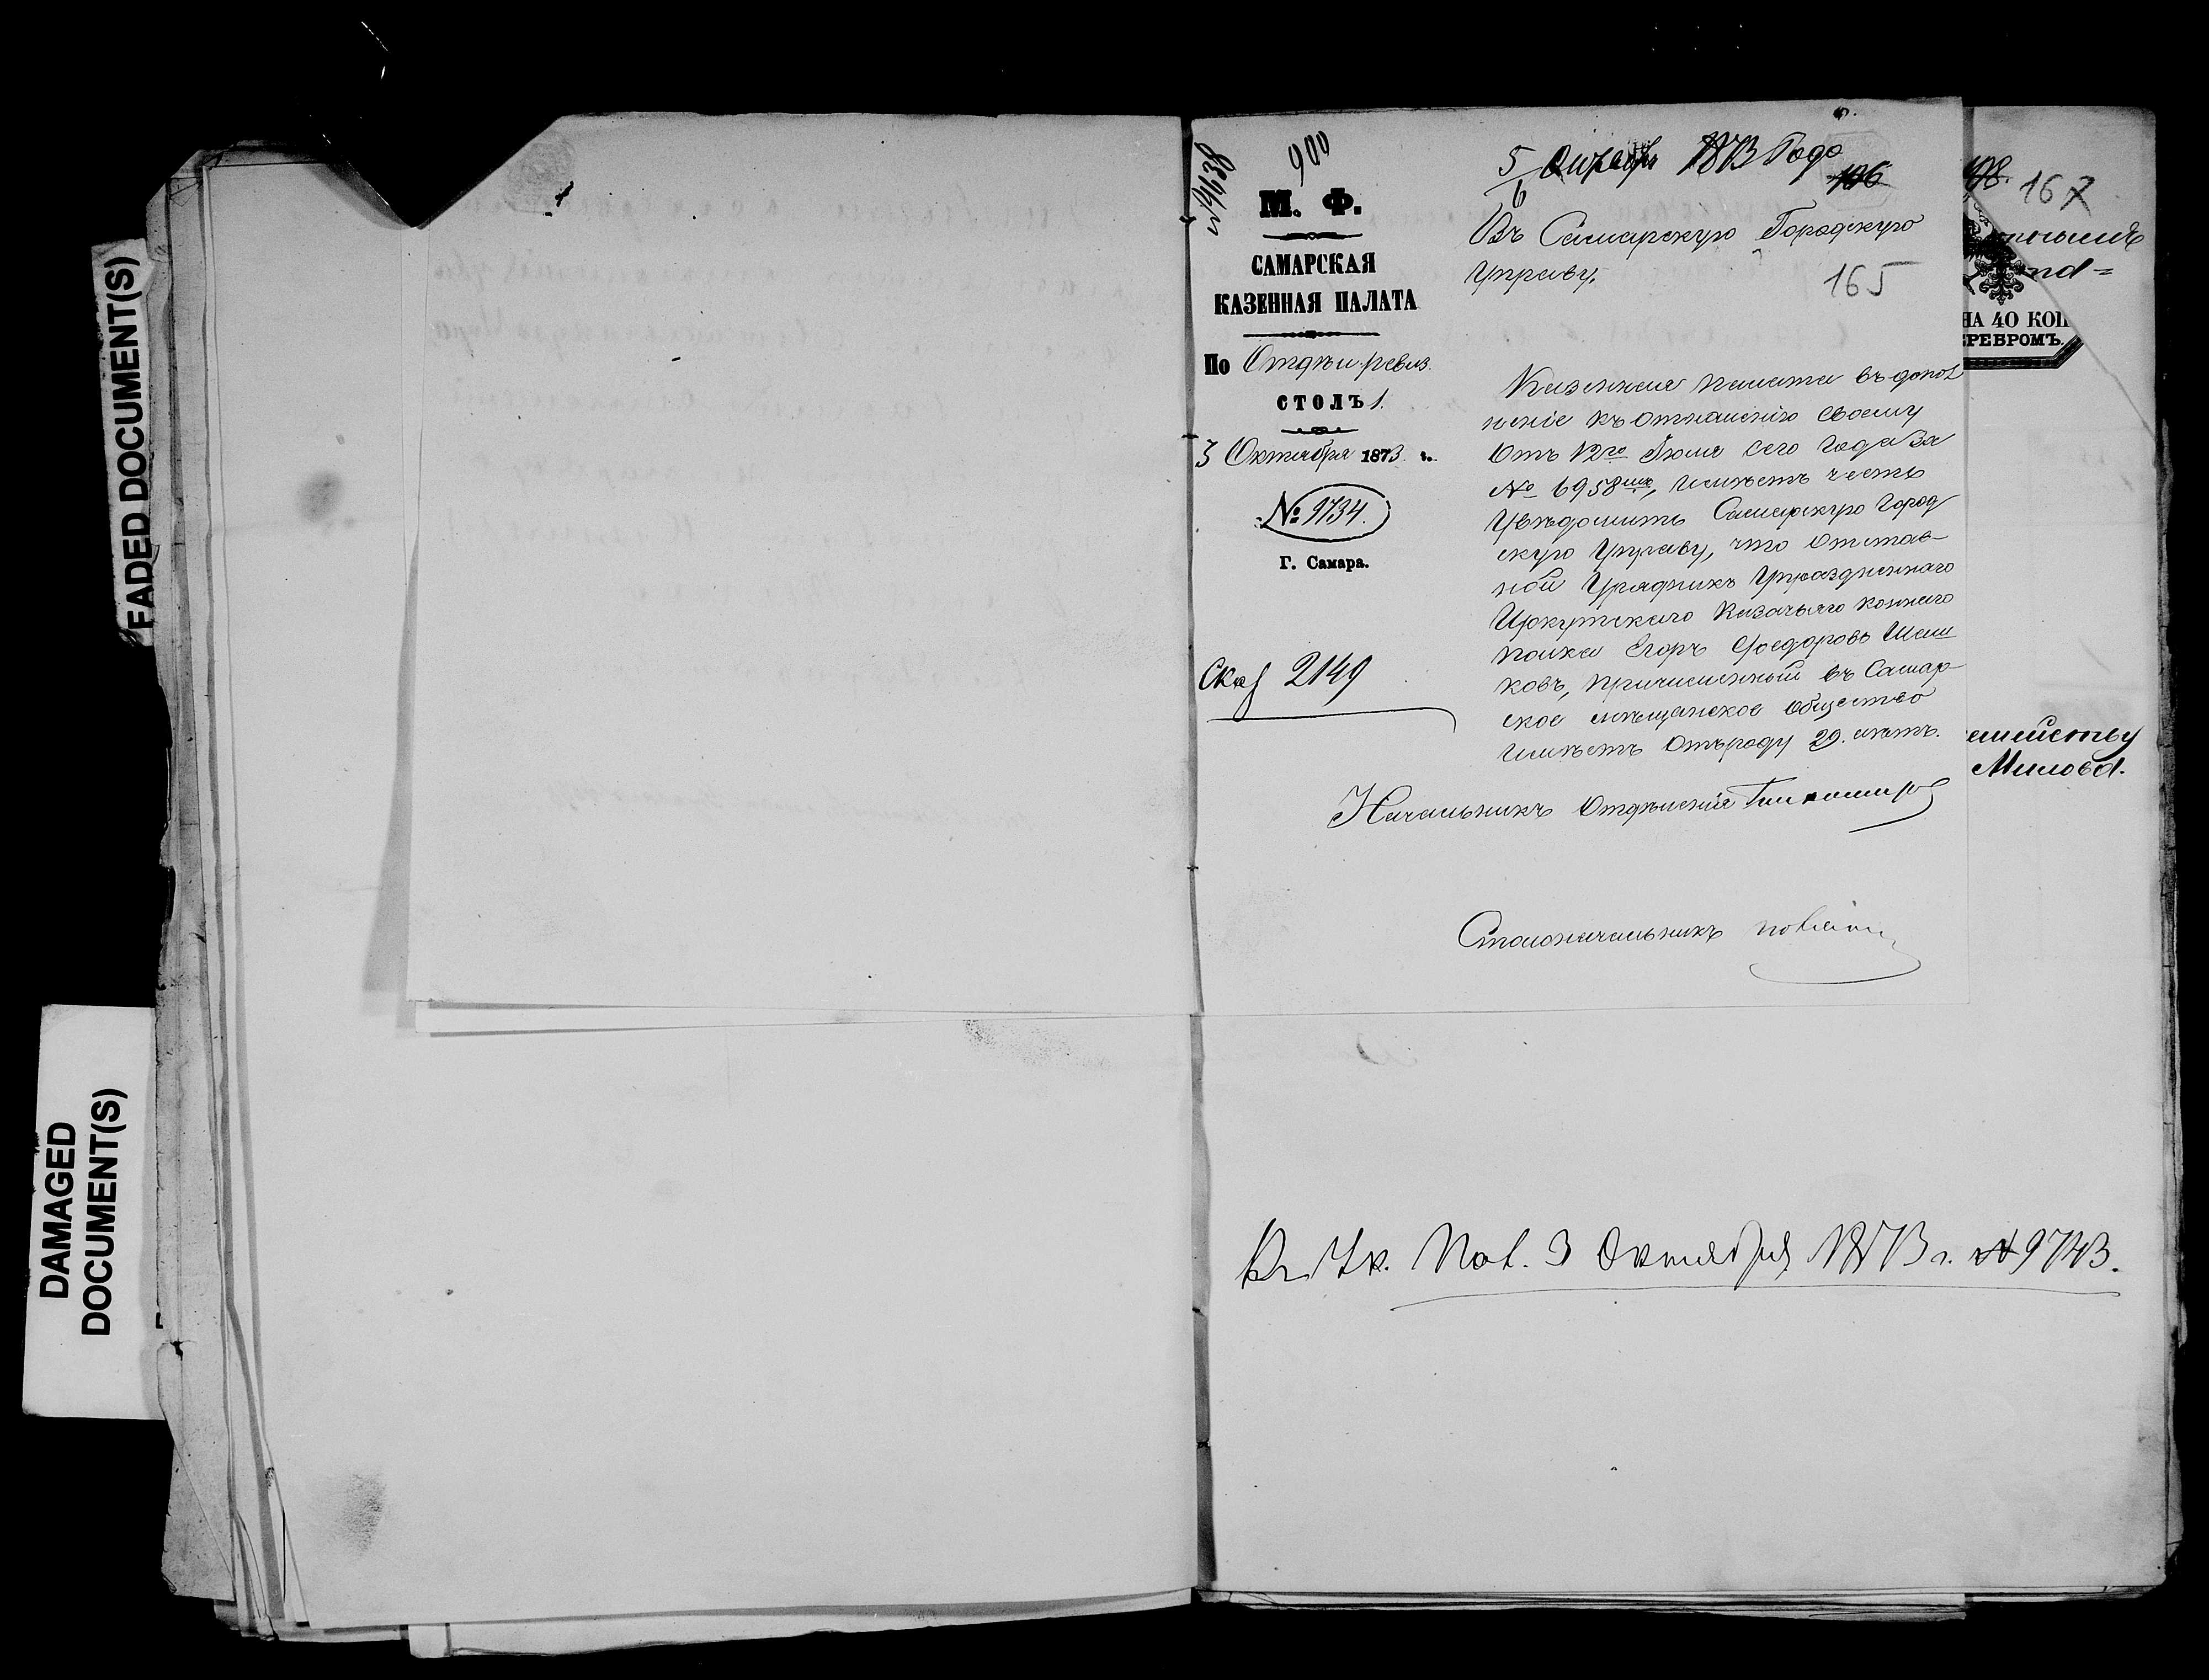 FADED DOCUMENT(S)
DAMAGED
DOCUMENT(S)
900
М. Ф.
САМАРСКАЯ
КАЗЕННАЯ ПАЛАТА
По Отдѣл. ревиз.
СТОЛЪ 1.
3 Октября 1873 г.
№ 9734.
Г. Самара.
Сказ 2149
5/6 1873 Года
106
Въ Самарскую Городскую
Управу.
165
Казенная Палата въ допол
неніе къ отношенію своему
отъ 12го Іюля сего года за
№ 6958мъ, имѣетъ честь
увѣдомить Самарскую Город
скую Управу, что отстав-
ной Урядникъ Упраздненнаго
Иркутскаго Казачьяго коннаго
полка Егоръ Ѳедоровъ
ковъ, причисленный въ Самар-
ское мѣщанское общество
имѣетъ отъ роду 29. лѣтъ.
Начальникъ Отдѣленія Тихомировъ
Столоначальникъ
3 Октября 1873 г. № 9743.
167
НА 40 КОП
ЕРЕБРОМЪ.
емейству
Милова.